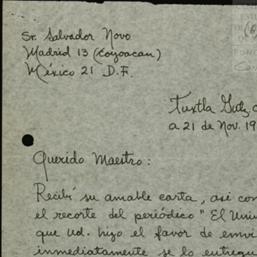 Sr. Salvador Novo
Madrid 13 (Coyoacan)
México 21 D.F.
Tuxtla Gutz,
a 21 de Nov. 19
Querido Maestro:
Recibí su amable carta, asi con
el recorte del periódico "El Uni
que Ud. hizo el favor de envi
inmediatamente se lo entregu